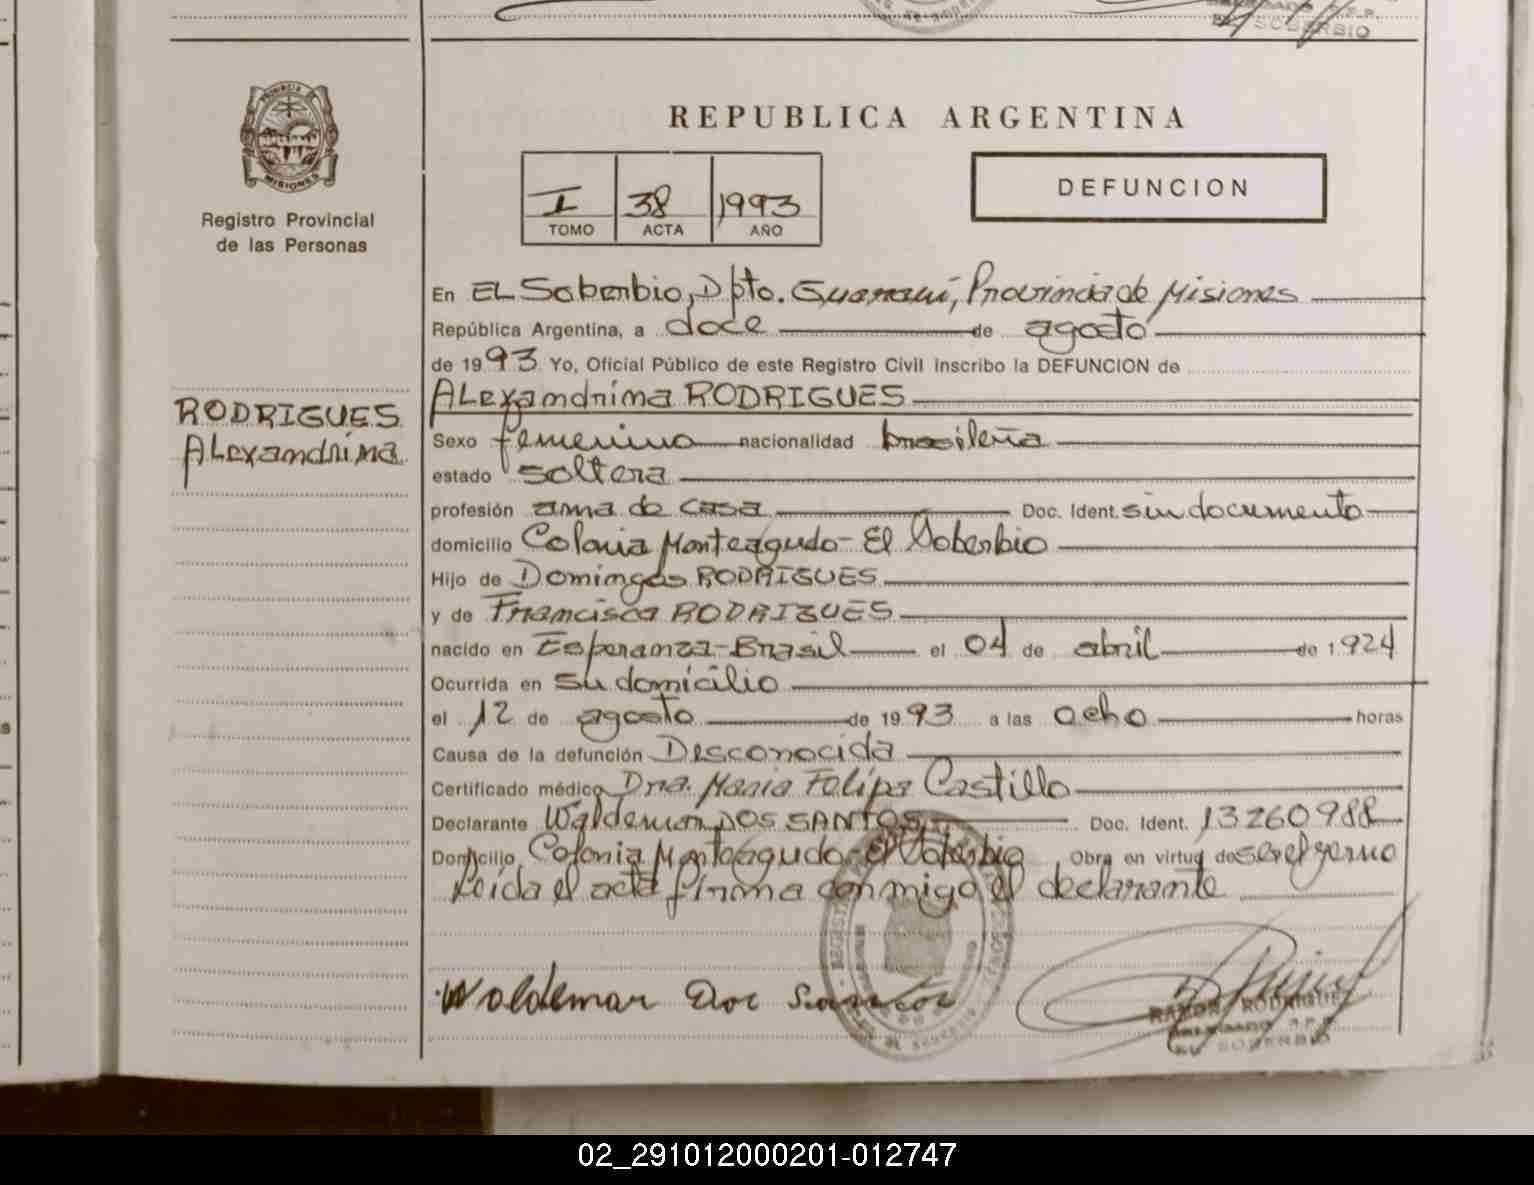 EL SOBERBIO
REPUBLICA ARGENTINA
PROVINCIA DE
MISIONES
Registro Provincial
de las Personas
I 38 1993
TOMO ACTA AÑO
DEFUNCION
En EL Soberbio, Dpto. Guaraní, Provincia de Misiones
República Argentina, a doce de agosto
de 1993 Yo, Oficial Público de este Registro Civil inscribo la DEFUNCION de
RODRIGUES
Alexandrina
Alexandrina RODRIGUES
Sexo femenino nacionalidad brasileña
estado soltera
profesión ama de casa Doc. Ident. sin documento
domicilio Colonia Monteagudo - El Soberbio
Hijo de Domingos RODRIGUES
y de Francisca RODRIGUES
nacido en Esperanza - Brasil el 04 de abril de 1.924
Ocurrida en su domicilio
el 12 de agosto de 1993 a las ocho horas
Causa de la defunción Desconocida
Certificado médico Dra. Maria Felipa Castillo
Declarante Waldemar DOS SANTOS Doc. Ident. 13260988
Domicilio Colonia Monteagudo - El Soberbio Obra en virtud de ser el yerno
Leída el acta firma conmigo el declarante
Waldemar Dos Santos
RAMON RODRIGUEZ
DELEGADO R.P.P.
EL SOBERBIO
02_291012000201-012747